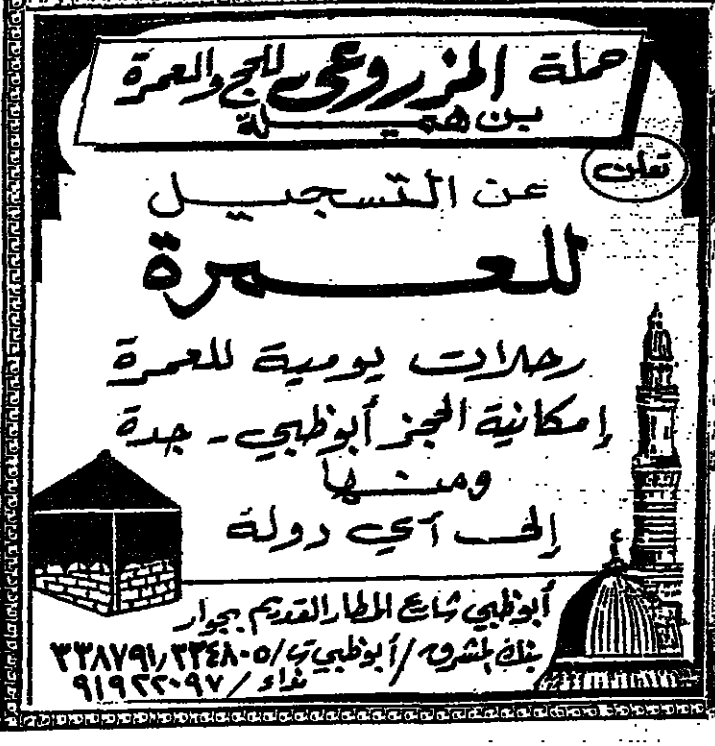 حملة المزروعي للحج والعمرة
بن هميلة
تعلن
عن التسجيل
للعمرة
رحلات يومية للعمرة
إمكانية الحجز أبوظبي - جدة
ومنها
إلى أي دولة
أبوظبي شارع المطار القديم بجوار
بنك المشرق / أبوظبي ت / ٣٣٤٨٠٥ / ٣٣٨٧٩١
نداء / ٩١٩٢٢٠٩٧